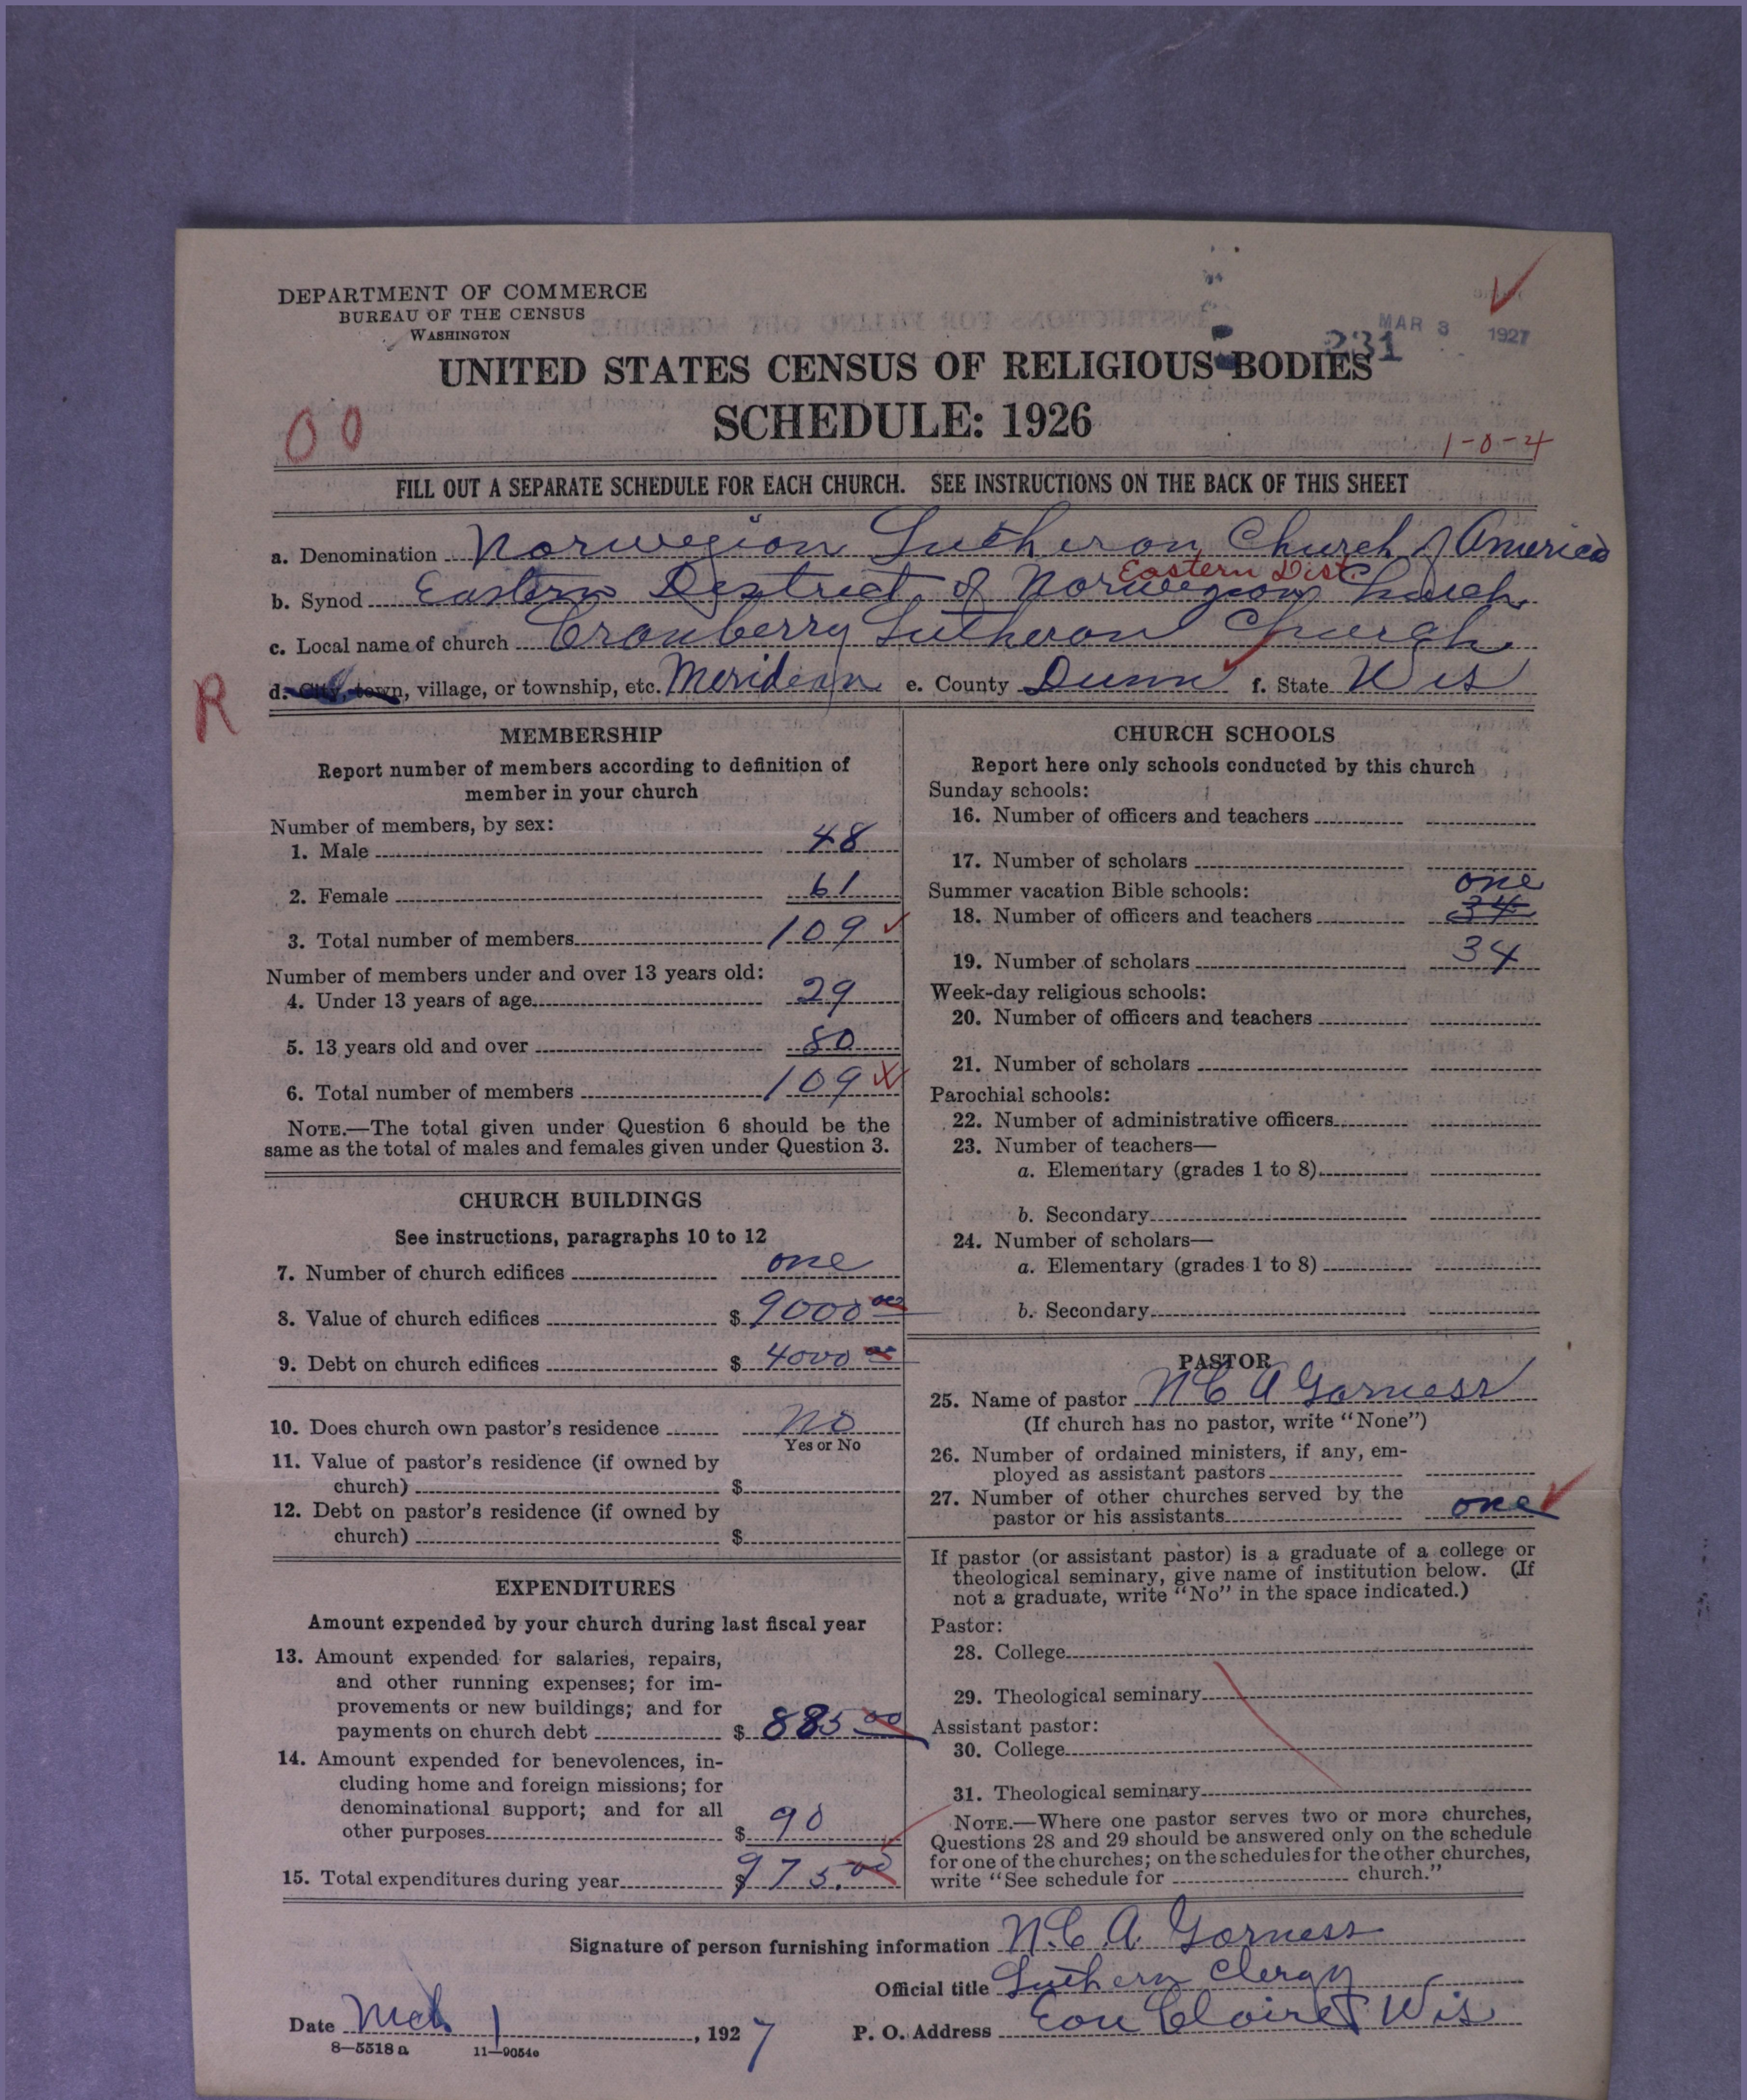 DEPARTMENT OF COMMERCE
BUREAU OF THE CENSUS
WASHINGTON
MAR 3 1927
231
UNITED STATES CENSUS OF RELIGIOUS BODIES
SCHEDULE: 1926
00
1-0-4
FILL OUT A SEPARATE SCHEDULE FOR EACH CHURCH. SEE INSTRUCTIONS ON THE BACK OF THIS SHEET
a. Denomination Norwegian Lutheran Church of America
Eastern Dist.
b. Synod Eastern District of Norwegian Church
c. Local name of church Cranberry Lutheran Church
R
d. City, town, village, or township, etc. Meridean e. County Dunn f. State Wis
MEMBERSHIP
Report number of members according to definition of
member in your church
Number of members, by sex:
1. Male 48
2. Female 61
3. Total number of members 109
Number of members under and over 13 years old:
4. Under 13 years of age 29
5. 13 years old and over 80
6. Total number of members 109
NOTE.—The total given under Question 6 should be the
same as the total of males and females given under Question 3.
CHURCH BUILDINGS
See instructions, paragraphs 10 to 12
7. Number of church edifices one
8. Value of church edifices $ 9000 00
9. Debt on church edifices $ 4000 00
10. Does church own pastor's residence No
Yes or No
11. Value of pastor's residence (if owned by
church) $
12. Debt on pastor's residence (if owned by
church) $
EXPENDITURES
Amount expended by your church during last fiscal year
13. Amount expended for salaries, repairs,
and other running expenses; for im-
provements or new buildings; and for
payments on church debt $ 885 00
14. Amount expended for benevolences, in-
cluding home and foreign missions; for
denominational support; and for all
other purposes $ 90
15. Total expenditures during year $ 975.00
CHURCH SCHOOLS
Report here only schools conducted by this church
Sunday schools:
16. Number of officers and teachers
17. Number of scholars
Summer vacation Bible schools:
one
18. Number of officers and teachers 34
19. Number of scholars 34
Week-day religious schools:
20. Number of officers and teachers
21. Number of scholars
Parochial schools:
22. Number of administrative officers
23. Number of teachers—
a. Elementary (grades 1 to 8)
b. Secondary
24. Number of scholars—
a. Elementary (grades 1 to 8)
b. Secondary
PASTOR
25. Name of pastor N C A Garness
(If church has no pastor, write "None")
26. Number of ordained ministers, if any, em-
ployed as assistant pastors
27. Number of other churches served by the
pastor or his assistants one
If pastor (or assistant pastor) is a graduate of a college or
theological seminary, give name of institution below. (If
not a graduate, write "No" in the space indicated.)
Pastor:
28. College
29. Theological seminary
Assistant pastor:
30. College
31. Theological seminary
NOTE.—Where one pastor serves two or more churches,
Questions 28 and 29 should be answered only on the schedule
for one of the churches; on the schedules for the other churches,
write "See schedule for church."
Signature of person furnishing information N. C. A. Garness
Official title Luthern Clergy
Date Mch 1, 1927 P. O. Address Eau Claire Wis
8—5518 a 11—9054c